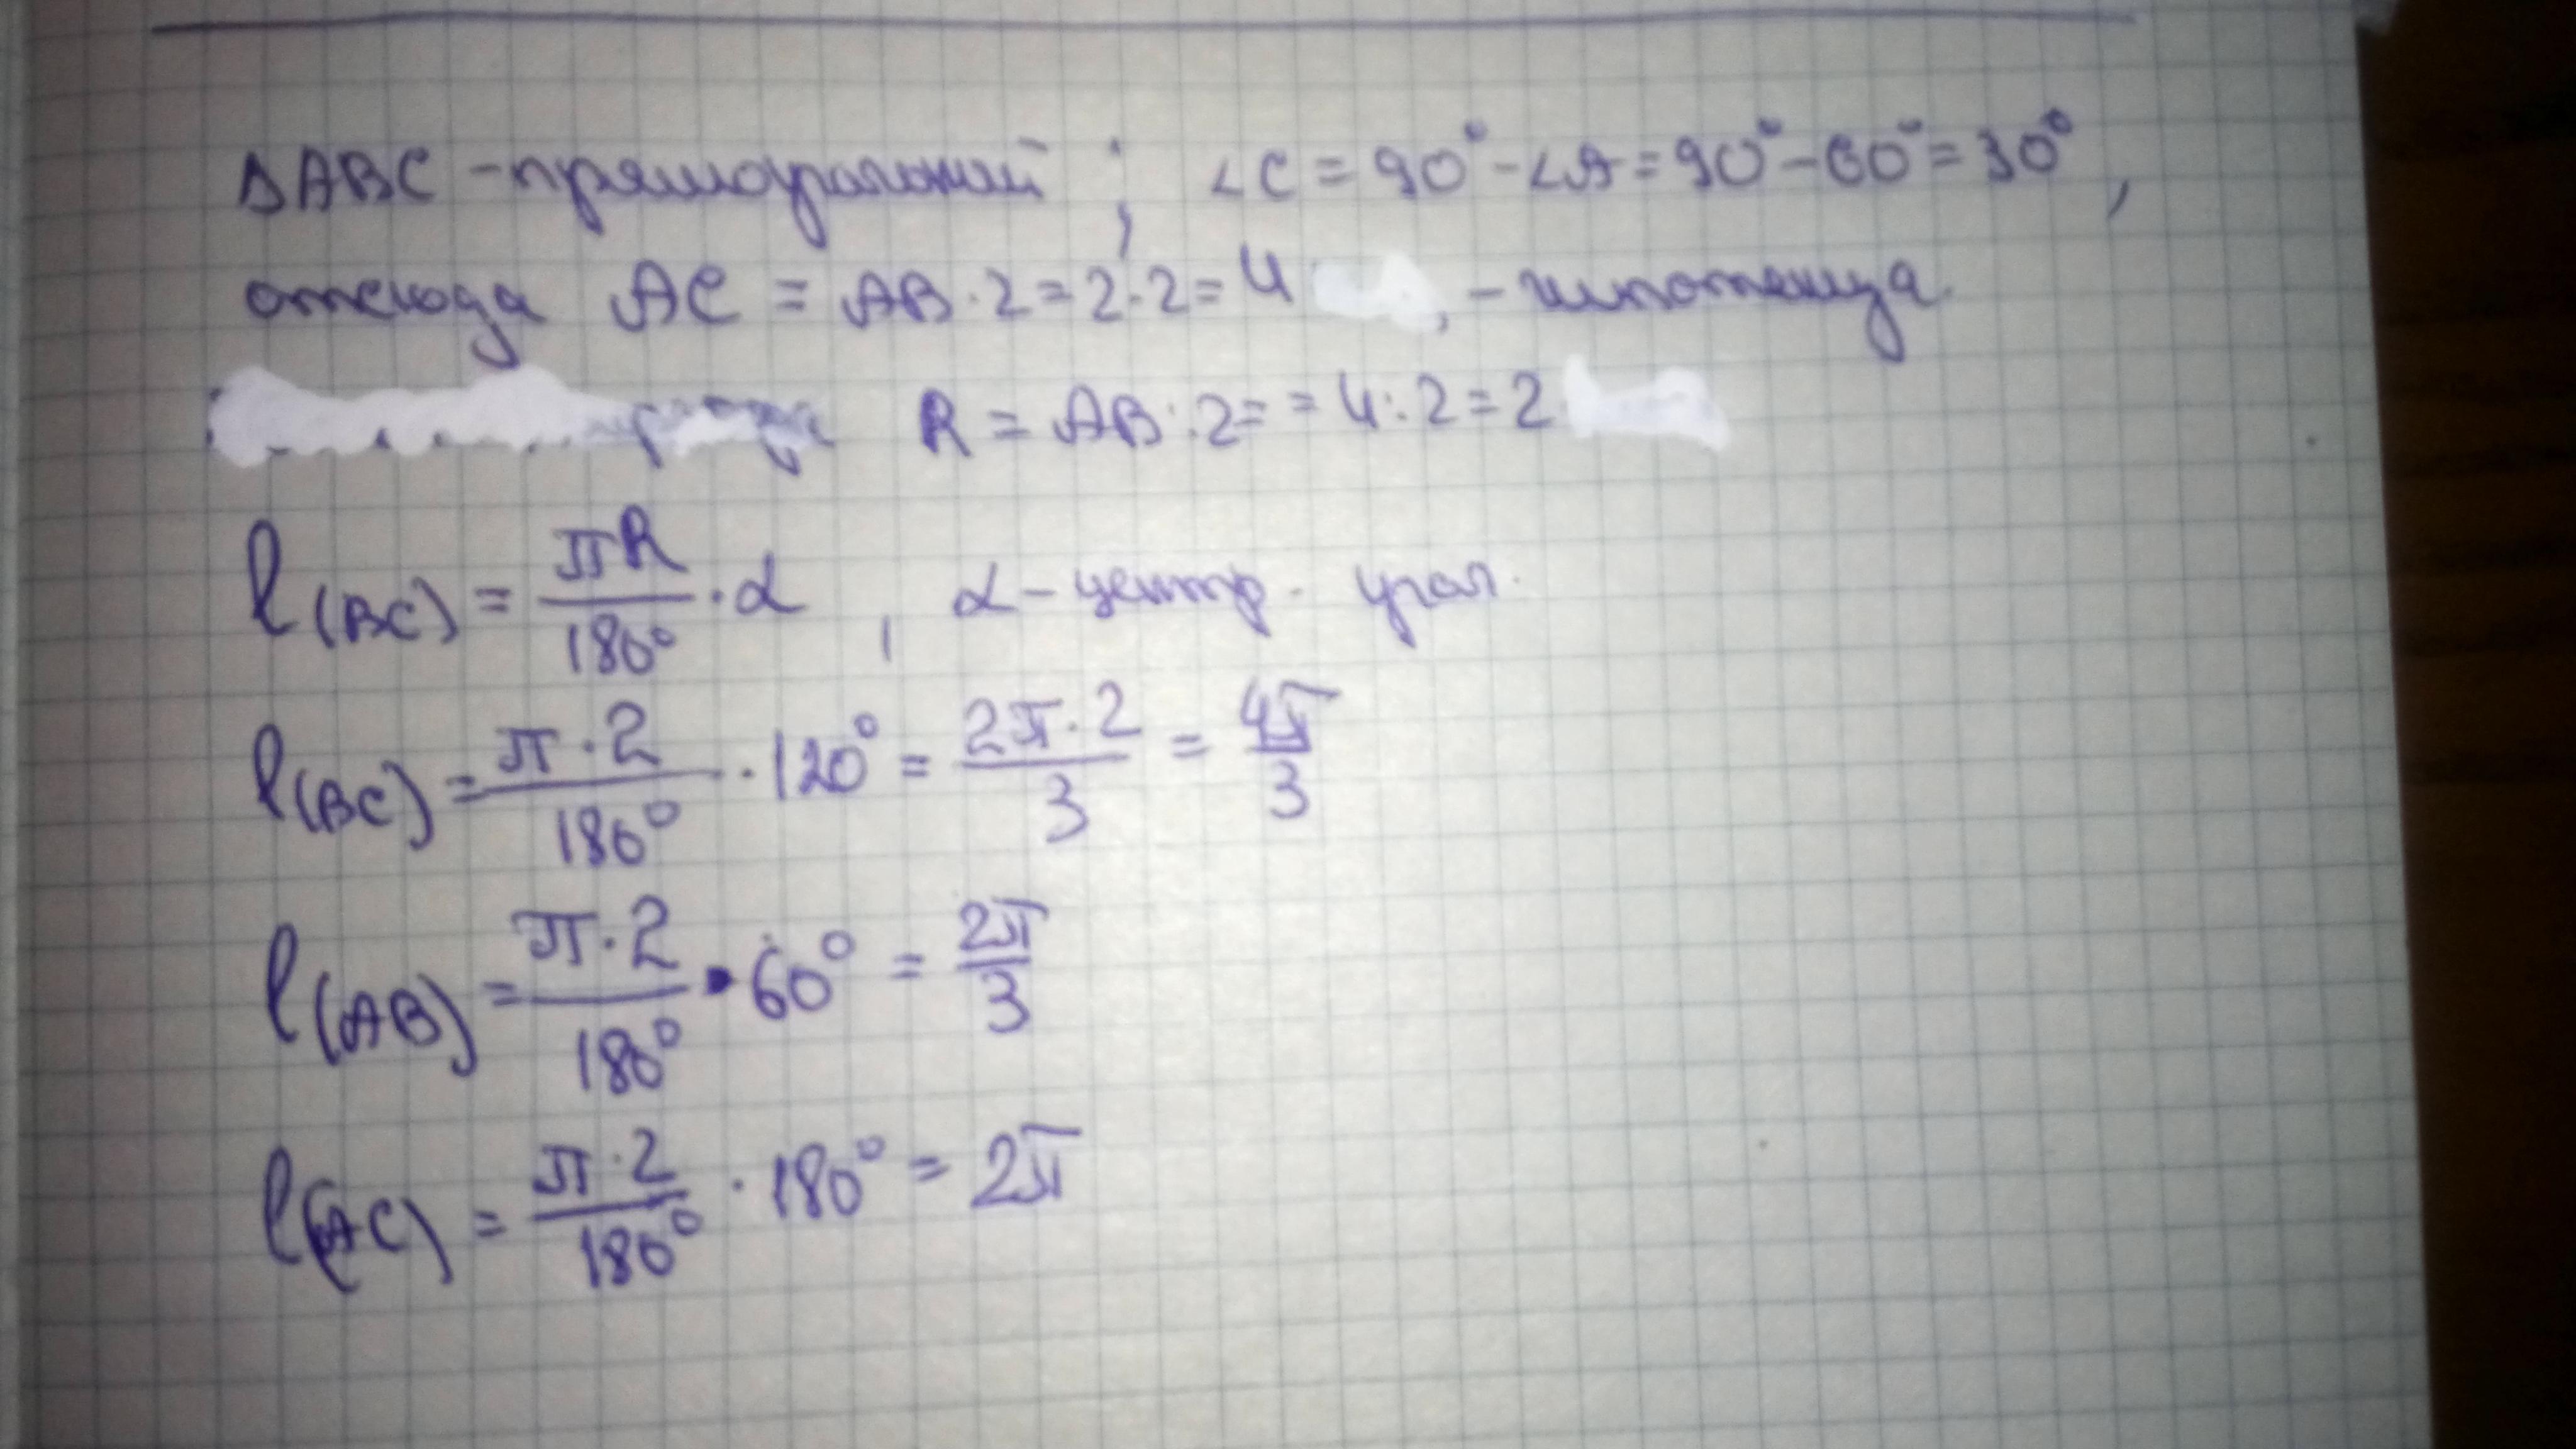 ΔABC - прямоугольный ; ∠C = 90° - ∠A = 90° - 60° = 30° ,
отсюда AC = AB · 2 = 2 · 2 = 4 , - гипотенуза.
R = AB : 2 = = 4 : 2 = 2
l(BC) = πR/180° · α , α - центр. угол.
l(BC) = π · 2/180° · 120° = 2π · 2/3 = 4π/3
l(AB) = π · 2/180° · 60° = 2π/3
l(AC) = π · 2/180° · 180° = 2π